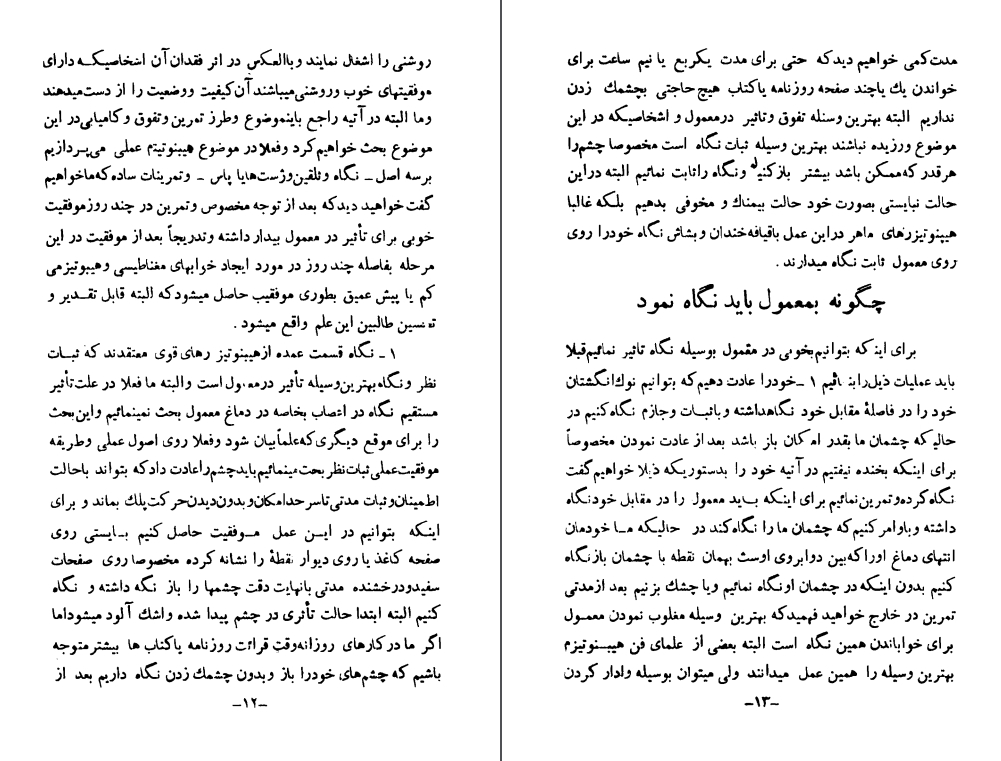 روشنی را اشغال نمایند وباالعکس در اثر فقدان آن اشخاصیکه دارای
موفقیتهای خوب وروشنی‌میباشند آن‌کیفیت ووضعیت را از دست‌میدهند
وما البته در آتیه راجع باینموضوع وطرز تمرین وتفوق وکامیابی‌در این
موضوع بحث خواهیم‌کرد وفعلا در موضوع هیپنوتیزم عملی می‌پردازیم
برسه اصل ـ نگاه وتلقین‌وژست‌هایا پاس ـ وتمرینات ساده‌که‌ماخواهیم
گفت خواهید دید‌که بعد از توجه مخصوص وتمرین در چند روزموفقیت
خوبی برای تأثیر در معمول بیدار داشته وتدریجاً بعد از موفقیت در این
مرحله بفاصله چند روز در مورد ایجاد خوابهای مغناطیسی وهیپوتیزمی
کم یا پیش عمیق بطوری موفقیب حاصل میشودکه البته قابل تقدیر و
تحسین طالبین این علم واقع میشود .
۱ ـ نگاه قسمت عمده ازهیپنوتیز رهای قوی معتقدند که ثبات
نظر ونگاه بهترین‌وسیله تأثیر درمعمول است والبته ما فعلا در علت‌تأثیر
مستقیم نگاه در اعصاب بخاصه در دماغ معمول بحث نمینمائیم واین‌بحث
را برای موقع دیگری‌که‌علماًبیان شود وفعلا روی اصول عملی وطریقه
موفقیت‌عملی ثبات‌نظر بحث مینمائیم‌باید‌چشم‌راعادت دادکه بتواند باحالت
اطمینان‌وثبات مدتی‌تاسرحدامکان‌وبدون‌دیدن‌حرکت‌پلك بماند و برای
اینکه بتوانیم در این عمل موفقیت حاصل کنیم بایستی روی
صفحه کاغذ یا روی دیوار نقطهٔ را نشانه کرده مخصوصا روی صفحات
سفیدودرخشنده مدتی بانهایت دقت چشمها را باز نگه داشته و نگاه
کنیم البته ابتدا حالت تأثری در چشم پیدا شده واشك آلود میشوداما
اگر ما درکارهای روزانه‌وقت قرائت روزنامه یاکتاب ها بیشتر متوجه
باشیم که چشم‌های خودرا باز وبدون چشمك زدن نگاه داریم بعد از
ـ۱۲ـ
مدت‌کمی خواهیم دیدکه حتی برای مدت یکربع یا نیم ساعت برای
خواندن یك یاچند صفحه روزنامه یاکتاب هیچ حاجتی بچشمك زدن
نداریم البته بهترین وسنله تفوق وتاثیر درمعمول و اشخاصیکه در این
موضوع ورزیده نباشند بهترین وسیله ثبات نگاه است مخصوصا چشم‌را
هرقدر که‌ممکن باشد بیشتر بازکنیم ونگاه راثابت نمائیم البته دراین
حالت نبایستی بصورت خود حالت بیمناك و مخوفی بدهیم بلکه غالبا
هیپنوتیزرهای ماهر دراین عمل باقیافه‌خندان وبشاش نگاه خودرا روی
روی معمول ثابت نگاه میدارند .
چگونه بمعمول باید نگاه نمود
برای اینکه بتوانیم‌بخوبی در مقمول بوسیله نگاه تاثیر نمائیم‌قبلا
باید عملیات ذیل‌را بنمائیم ۱ ـ‌خودرا عادت دهیم‌که بتوانیم نوك‌انگشتان
خود را در فاصلهٔ مقابل خود نگاهداشته و باثبات وجازم نگاه‌کنیم در
حالیکه چشمان ما بقدر امکان باز باشد بعد از عادت نمودن مخصوصاً
برای اینکه بخنده نیفتیم در آتیه خود را بدستوریکه ذیلا خواهیم‌گفت
نگاه‌کرده‌وتمرین‌نمائیم برای اینکه باید معمول را در مقابل خودنگاه
داشته وباوامر کنیم‌که چشمان ما را نگاه‌کند در حالیکه ما خودمان
انتهای دماغ اوراکه‌بین دوابروی اوست بهمان نقطه با چشمان بازنگاه
کنیم بدون اینکه در چشمان اونگاه نمائیم ویا چشك بزنیم بعد ازمدتی
تمرین در خارج خواهید فهمیدکه بهترین وسیله مغلوب نمودن معمول
برای خواباندن همین نگاه است البته بعضی از علمای فن هیپنوتیزم
بهترین وسیله را همین عمل میدانند ولی میتوان بوسیله وادار کردن
ـ۱۳ـ